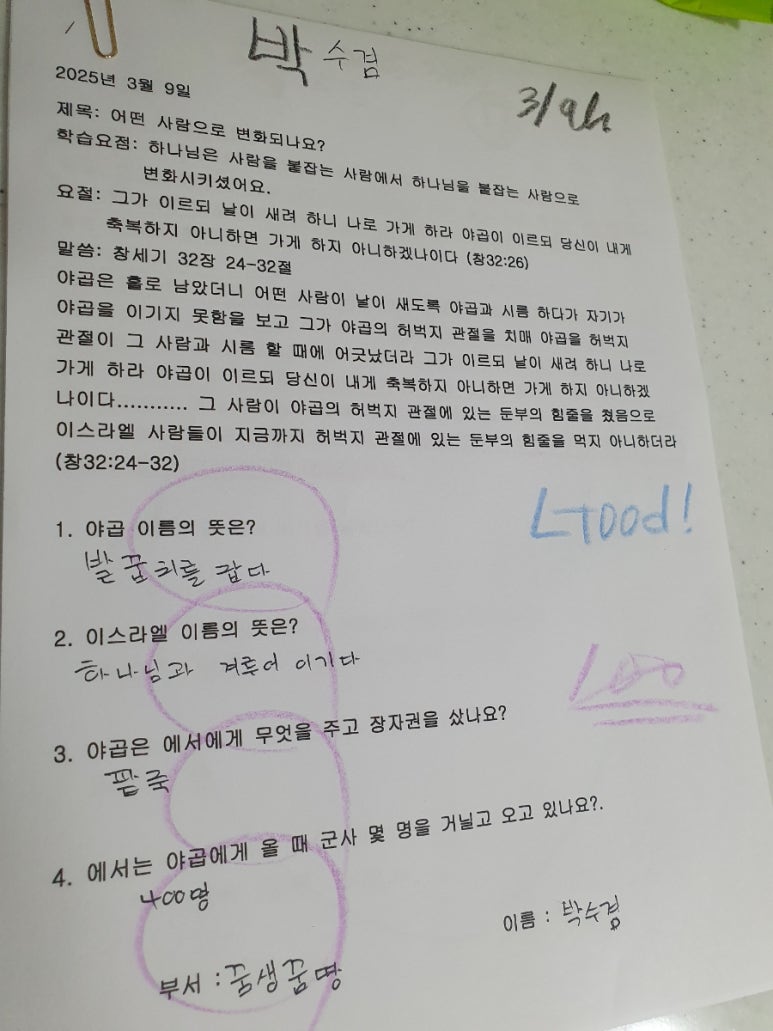 박수겸
3/9
2025년 3월 9일
제목: 어떤 사람으로 변화되나요?
학습요점: 하나님은 사람을 붙잡는 사람에서 하나님을 붙잡는 사람으로
변화시키셨어요.
요절: 그가 이르되 날이 새려 하니 나로 가게 하라 야곱이 이르되 당신이 내게
축복하지 아니하면 가게 하지 아니하겠나이다 (창32:26)
말씀: 창세기 32장 24-32절
야곱은 홀로 남았더니 어떤 사람이 날이 새도록 야곱과 시름 하다가 자기가
야곱을 이기지 못함을 보고 그가 야곱의 허벅지 관절을 치매 야곱을 허벅지
관절이 그 사람과 시름 할 때에 어긋났더라 그가 이르되 날이 새려 하니 나로
가게 하라 야곱이 이르되 당신이 내게 축복하지 아니하면 가게 하지 아니하겠
나이다........... 그 사람이 야곱의 허벅지 관절에 있는 둔부의 힘줄을 쳤음으로
이스라엘 사람들이 지금까지 허벅지 관절에 있는 둔부의 힘줄을 먹지 아니하더라
(창32:24-32)
Good!
1. 야곱 이름의 뜻은?
발꿈치를 잡다
2. 이스라엘 이름의 뜻은?
하나님과 겨루어 이기다
100
3. 야곱은 에서에게 무엇을 주고 장자권을 샀나요?
팥죽
4. 에서는 야곱에게 올 때 군사 몇 명을 거닐고 오고 있나요?.
400명
이름 : 박수겸
부서 : 꿈생꿈땅